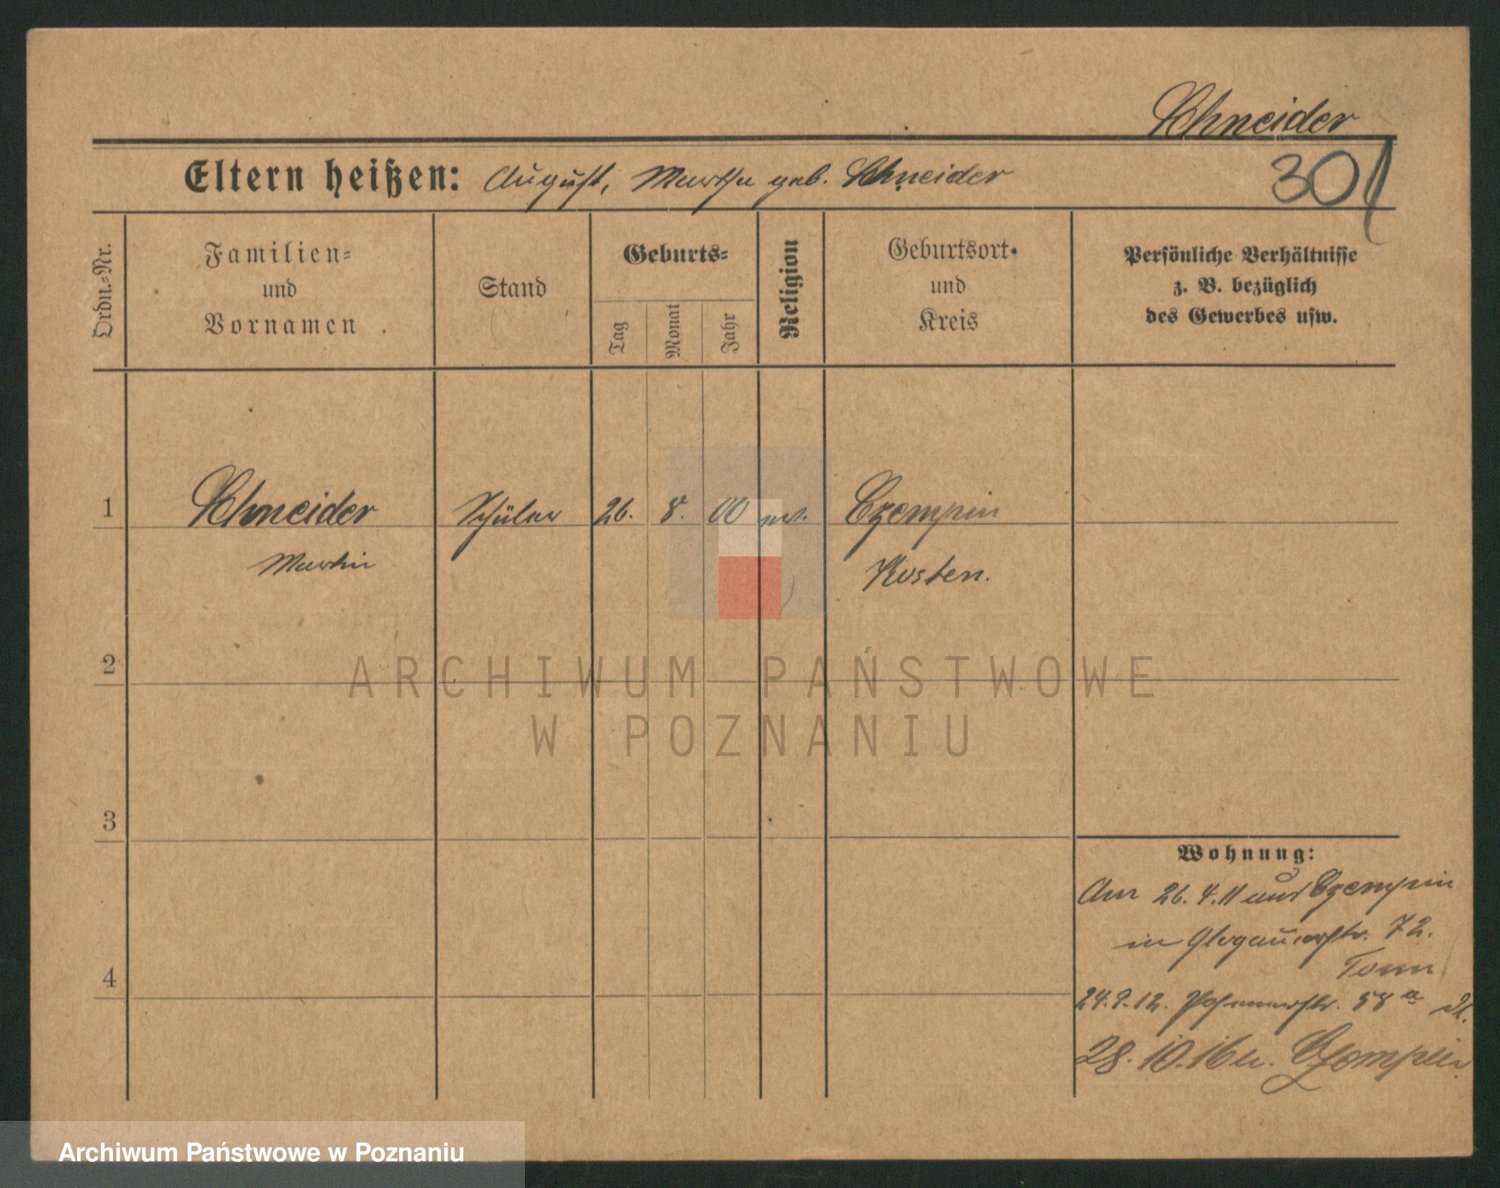 Schneider
301
Eltern heißen: August, Martha geb. Schneider
Ordn.=Nr.
Familien=
und
Vornamen
Stand
Geburts=
Tag
Monat
Jahr
Religion
Geburtsort
und
Kreis
Persönliche Verhältnisse
z. B. bezüglich
des Gewerbes usw.
1 Schneider Schüler 26. 8. 00 ev. Czempin
Martin Kosten.
2
3
4
Wohnung:
Am 26. 4. 11 aus Czempin
in Glogauerstr. 72.
24.9.12. Posenerstr. 58a
28.10.16 n. Czempin
ARCHIWUM PAŃSTWOWE
W POZNANIU
Archiwum Państwowe w Poznaniu